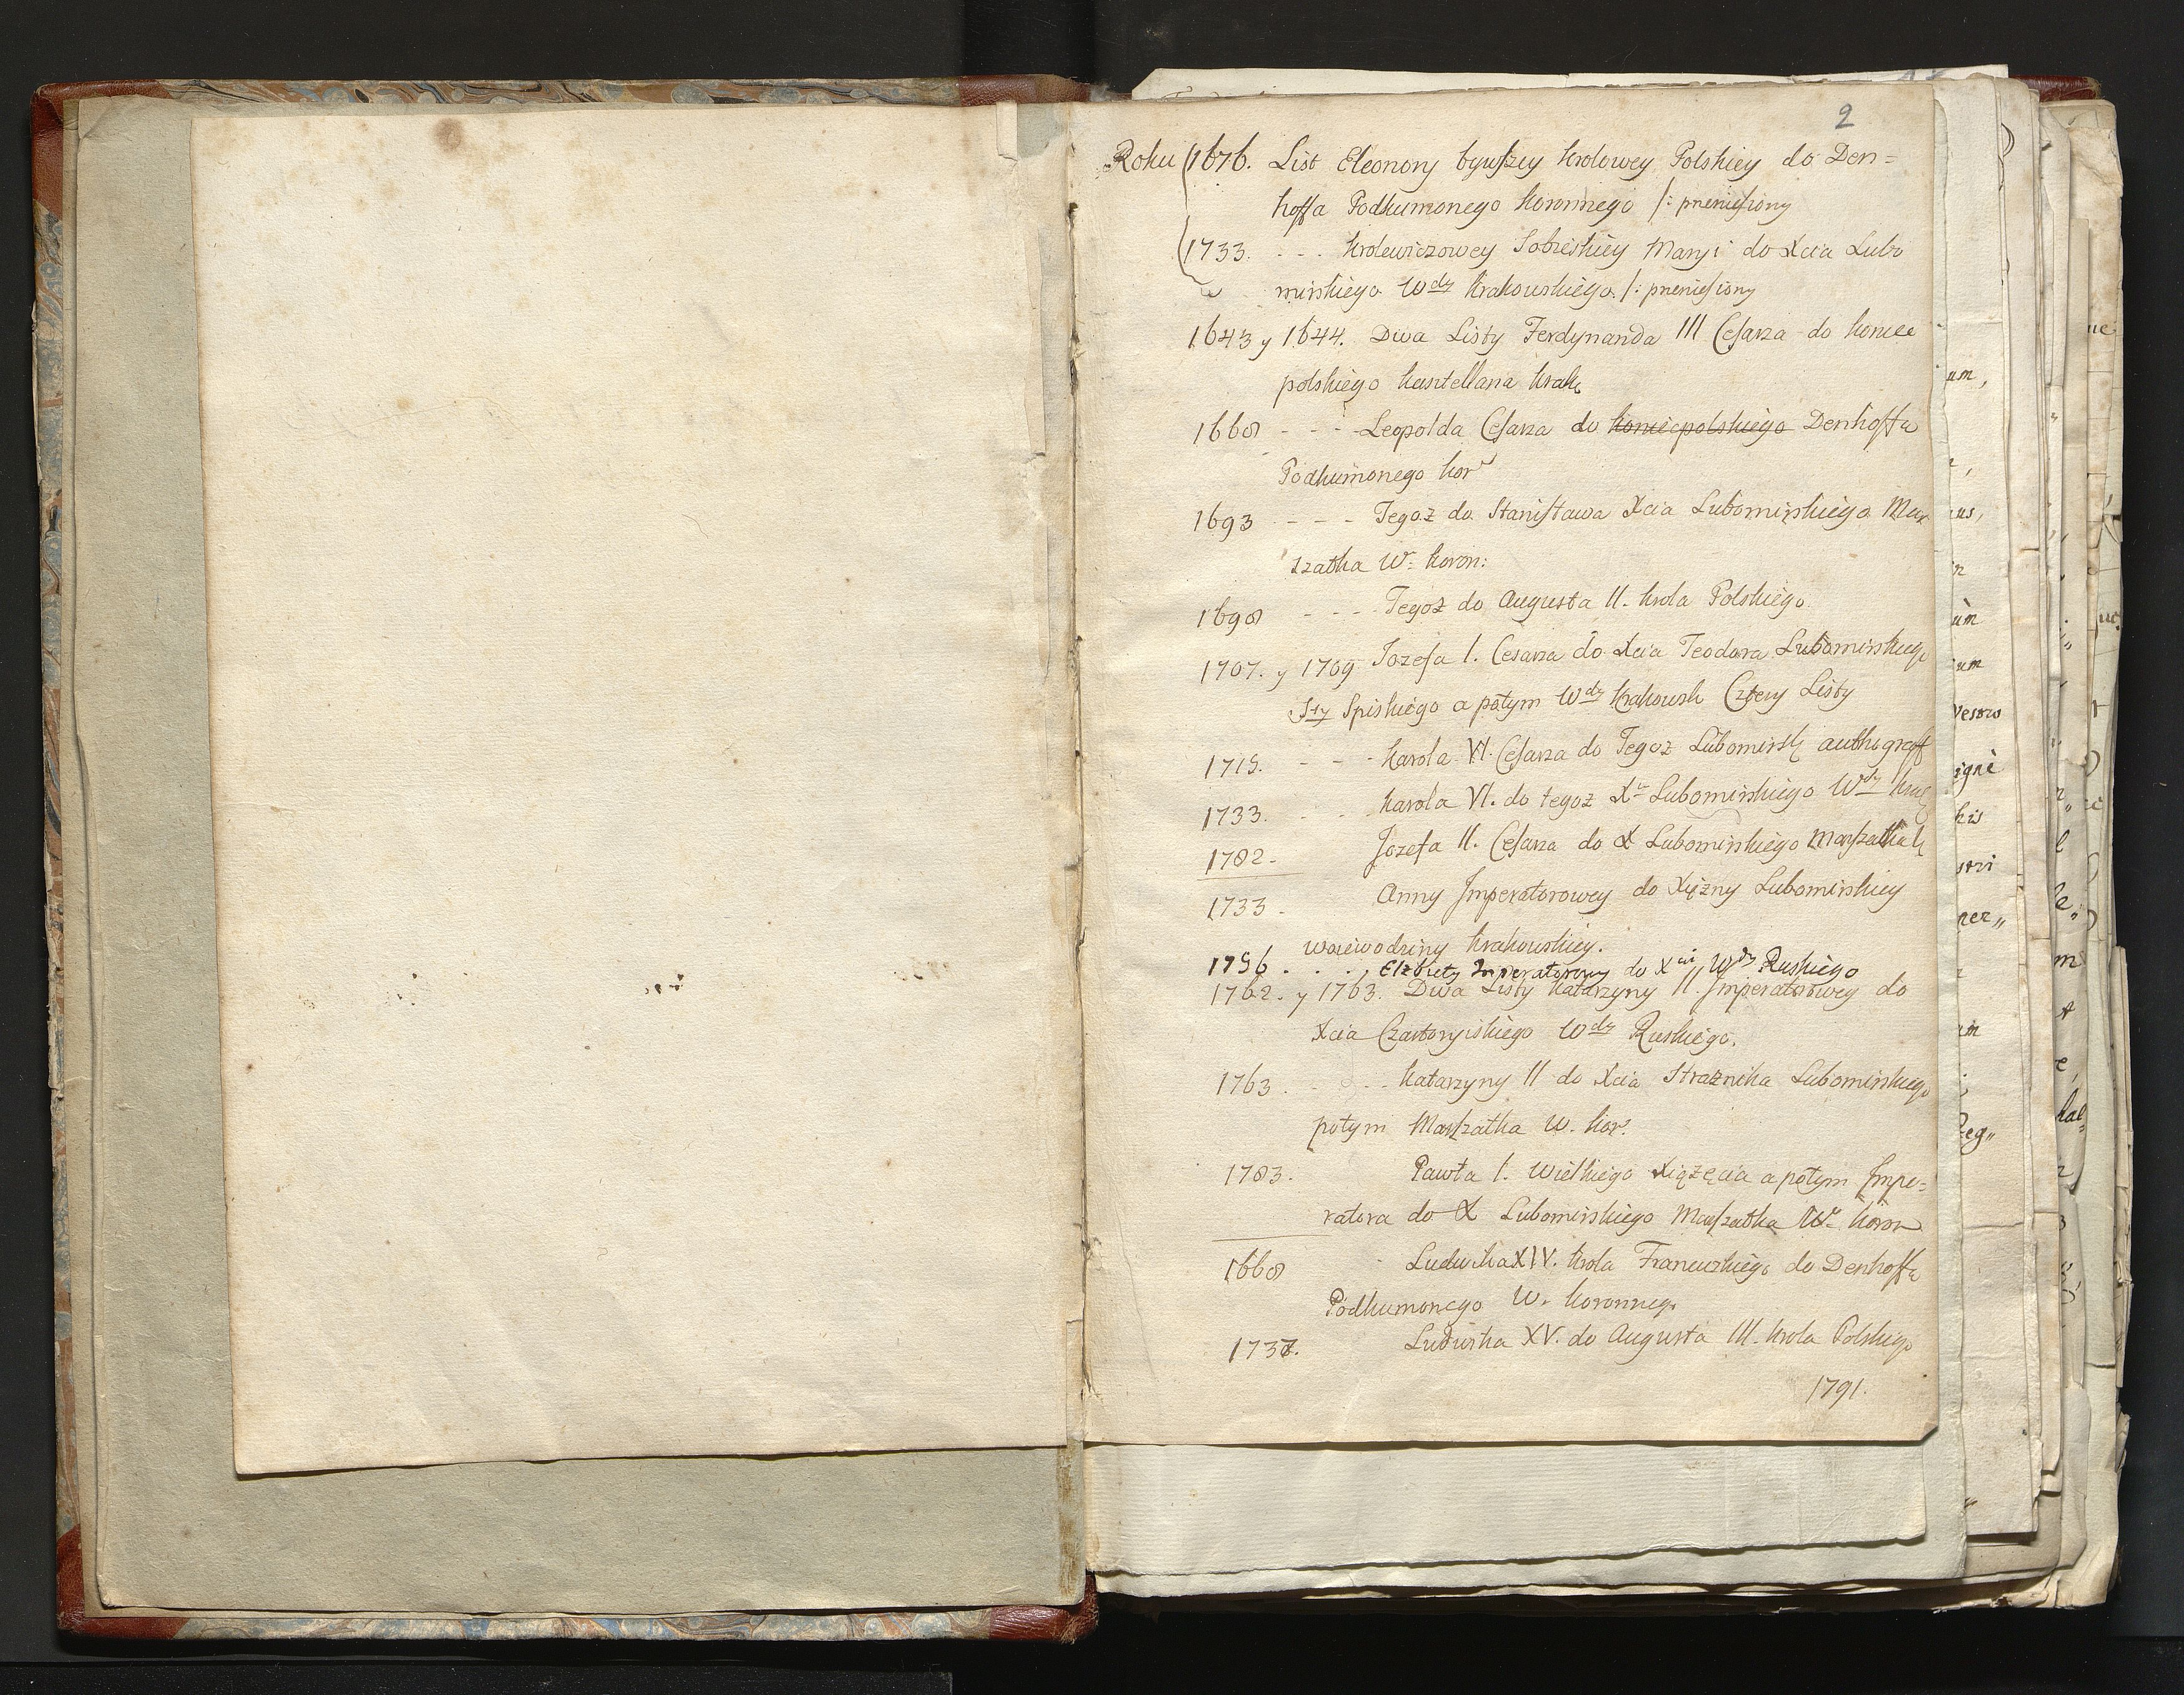 2
Roku 1676. List Eleonory bywszey krolowey Polskiey do Den=
hoffa Podkumorzego koronnego /: przeniesiony
1733. - - - krolewiczowey Sobieskiey Maryi do Xcia Lubo
mirskiego Wdy krakowskiego /: przeniesiony
1643 y 1644. Dwa Listy Ferdynanda III Cesarza do koniec
polskiego kasztellana krak
1668 - - - Leopolda Cesarza do koniecpolskiego Denhoffa
Podkumorzego kor
1693 - - - Tegoz do Stanisława Xcia Lubomirskiego Mar
szałka W. koron:
1698 - - - Tegoz do Augusta II. krola Polskiego
1707. y 1709 Jozefa I. Cesarza do Xcia Teodora Lubomirskiego
Sty Spiskiego a potym Wdy krakowsk Cztery Listy
1715. - - - karola VI. Cesarza do Tegoz Lubomirsk authograff
1733. - - - karola VI. do tegoz X Lubomirskiego Wdy
1782 - Jozefa II. Cesarza do X Lubomirskiego Marszałka
1733 - Anny Imperatorowey do Xiężny Lubomirskiey
woiewodziny krakowskiey.
1756. . . . Elzbiety Imperatorowy do Xcia Wdy Ruskiego
1762. y 1763. Dwa Listy katarzyny II. Imperatorowey do
Xcia Czartoryiskiego Wdy Ruskiego.
1763 - - - katarzyny II do Xcia Straznika Lubomirskiego
potym Marszałka W. kor.
1783. Pawła I. Wielkiego Xiążęcia a potym Impe=
ratora do X Lubomirskiego Marszałka W. koron
1668 - Ludwika XIV. krola Francuzkiego do Denhoffa
Podkumorzego W. koronnego
1737. Ludwika XV. do Augusta III. krola Polskiego
1791.
um,
us,
n
um
vestro
igné
his
stri
ner„
Reg„